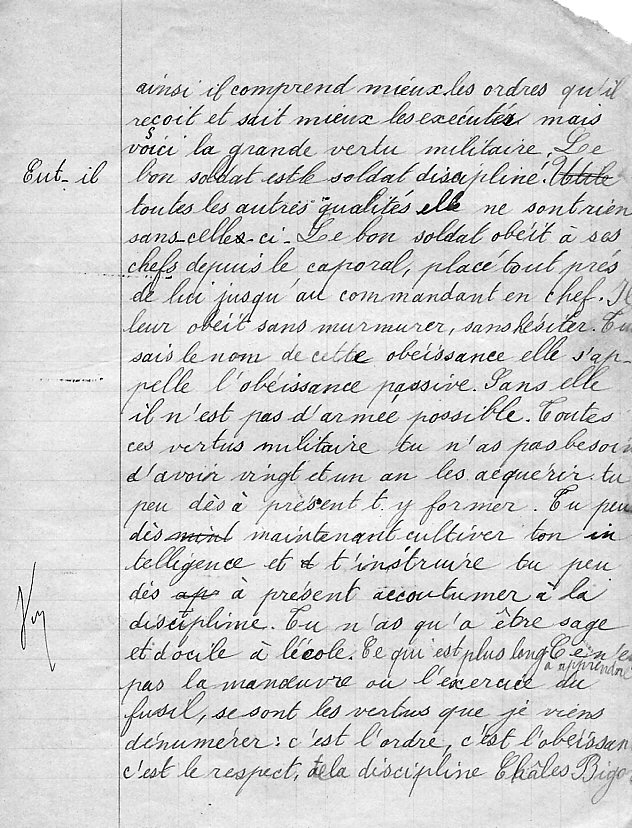 ainsi il comprend mieux les ordres qu'il
reçoit et sait mieux les exécuter mais
voici la grande vertu militaire. Le
Eut-il
bon soldat est le soldat discipliné.
toutes les autres qualités elle ne sont rien
sans-celles-ci-Le bon soldat obéit à ses
chefs depuis le caporal, placé tout prés
de lui jusqu'au commandant en chef. Il
leur obéit sans murmurer, sans hésiter. Tu
sais le nom de cette obéissance elle s'ap-
pelle l'obéissance passive. Sans elle
il n'est pas d'armée possible. Toutes
ces vertus militaire tu n'as pas besoin
d'avoir vingt et un an les aequérir tu
peu dès à présent t.y former. Tu peu
dès maintenant cultiver ton in
telligence et t'instruire tu peu
dès à présent accoutumer à la
discipline. Tu n'as qu'a être sage
et docile à l'école. Ce qui est plus long Ce n'es
à apprendre
pas la manœuvre ou l'exercice du
fusil, se sont les vertus que je viens
dénumérer : c'est l'ordre, c'est l'obéissan
c'est le respect, de la discipline Châles Bigo